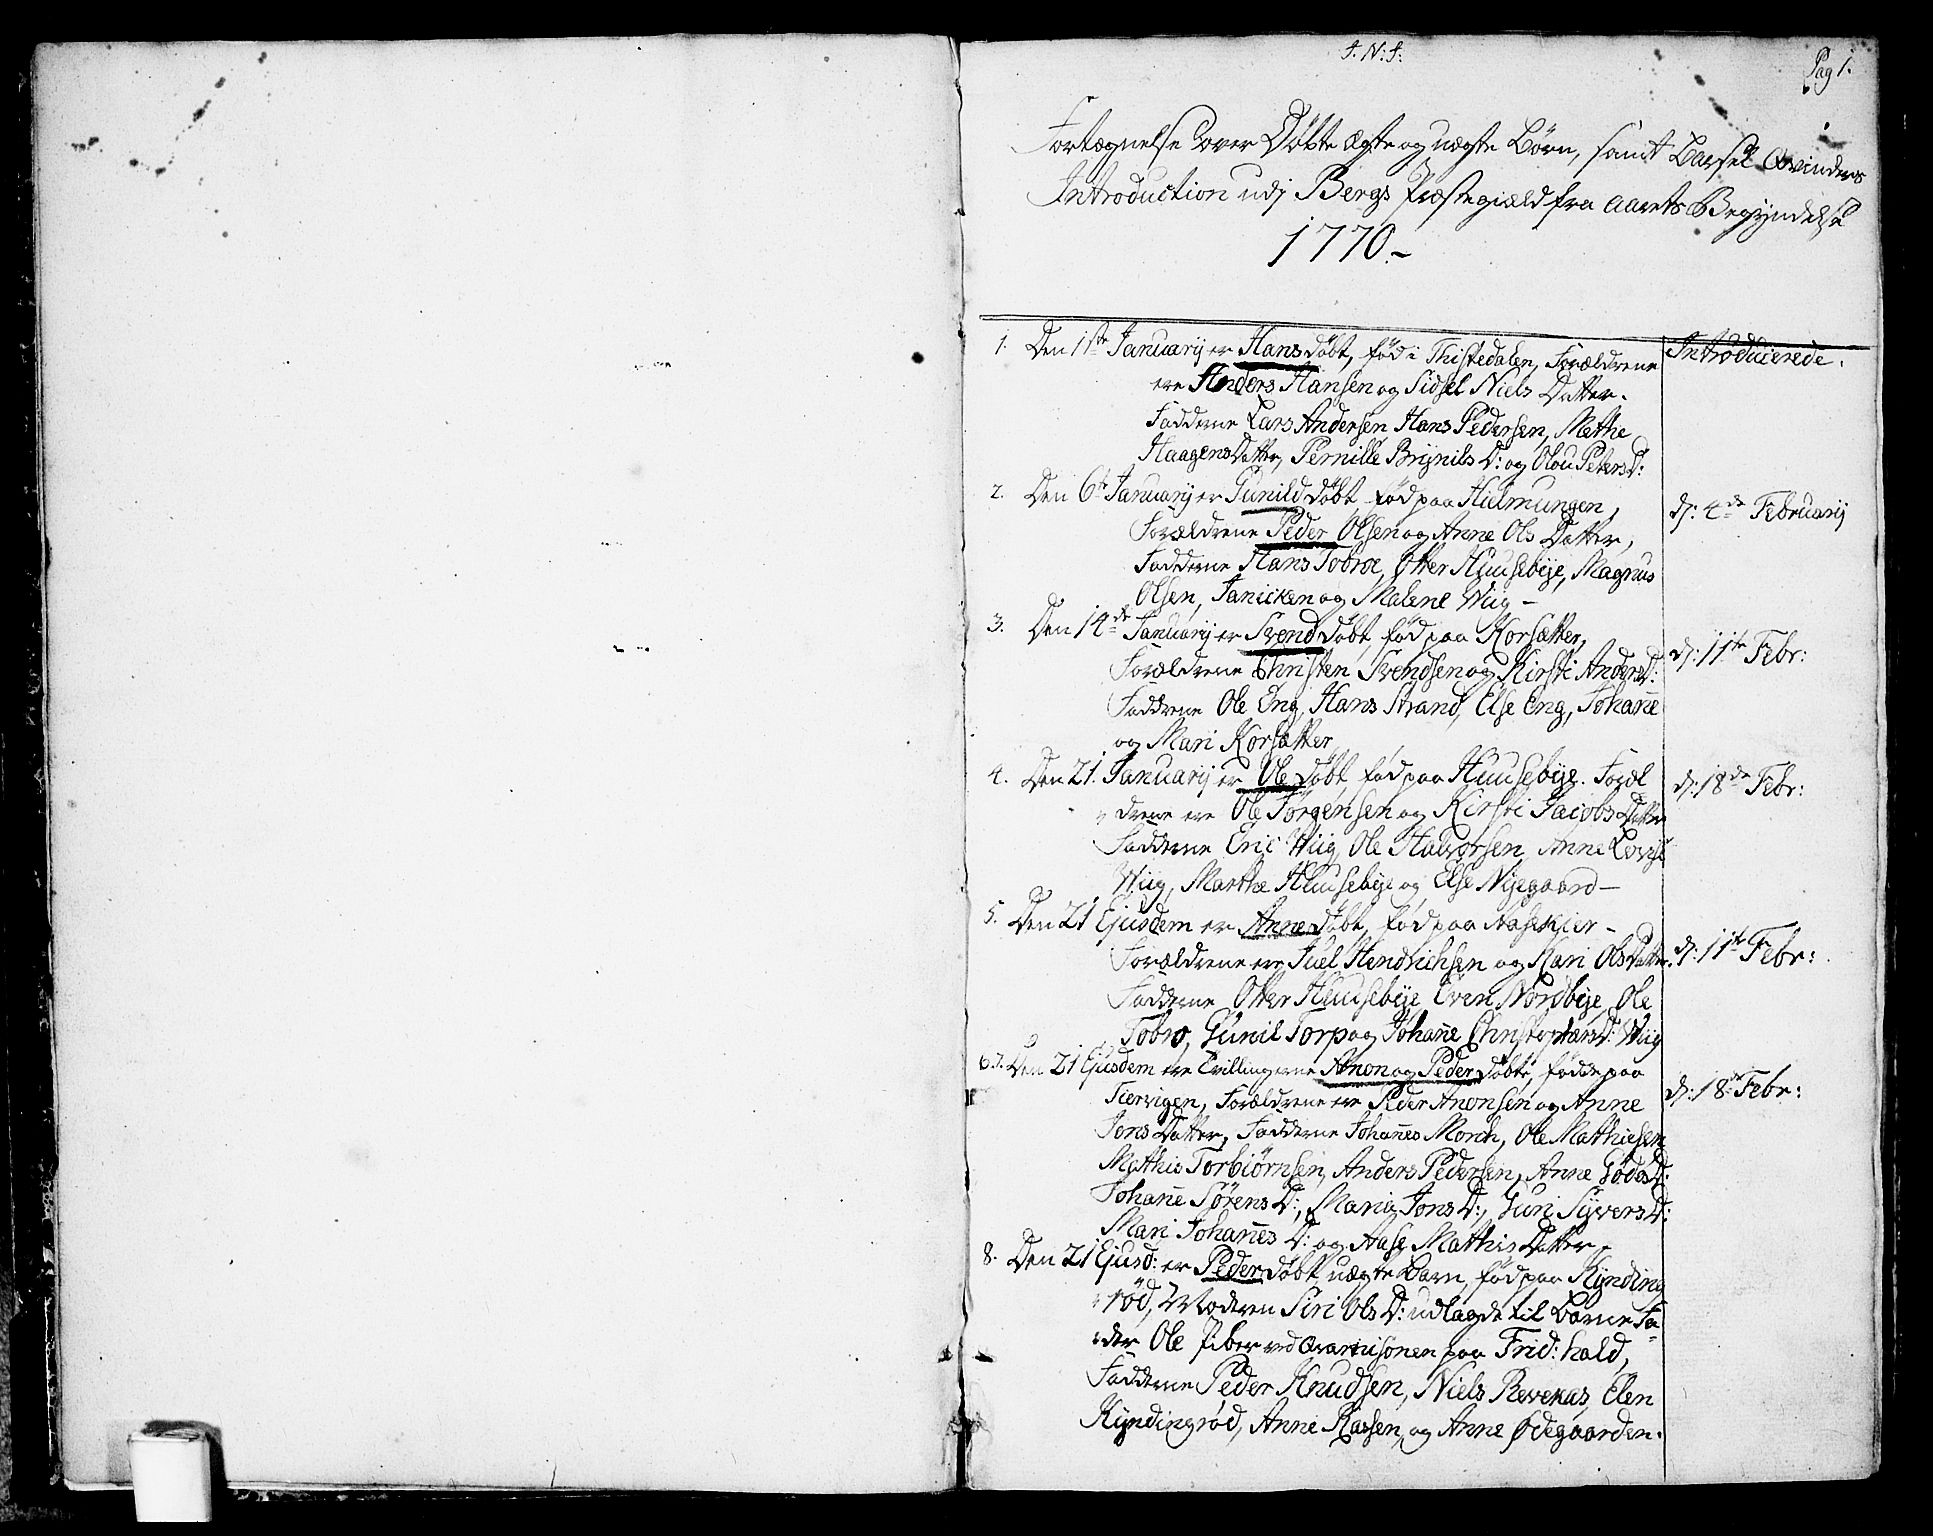 J: N: J:
Pag 1.
Fortægnelse over Døbte Ægte og uægte Børn, samt Barsel Qvinders
Introduction udj Bergs Præstegiæld fra Aarets Begyndelse
1770.-
Introducierede.
1. Den 1ste Januarij er Hans døbt, fød i Thistedalen, Forældrene
ere Anders Hansen og Sidsel Niels Datter.
Fadderne Lars Andersen Hans Pedersen, Mathe
Haagens Datter, Pernille Brynils D: og Olou Peters D:
2. Den 6te Januarij er Gunild døbt, fød paa Hielmungen,
d: 4de Februarij
Forældrene Peder Olsen og Anne Ols Datter,
Fadderne Hans Tobroe, Otter Huusebye, Magnus
Olsen, Janicken og Malene Wiig -
3. Den 14de Januarij er Svend døbt, fød paa Korsætter,
d: 11te Febr:
Forældrene Christen Svendsen og Kirsti Anders D:
Faddrene Ole Eng, Hans Strand, Else Eng, Johane
og Mari Korsætter
4. Den 21. Januarij er Ole døbt, fød paa Huusebye. Foræl
d: 18de Febr:
drene ere Ole Jørgensen og Kirsti Jacobs Datter
Fadderne Eric Wiig, Ole Halvorsen, Anne Lovise
Wiig, Marthe Huusebye og Else Nyegaard-
5. Den 21 Ejusdem er Anne døbt, fød paa Aasekjer -
Forældrene ere Juel Hendrichsen og Kari Ols Datter.
d: 11te Febr:
Fadderne Otter Huusebye Even Nordbye, Ole
Tobro, Gunil Torp og Johane Christophers D: Wiig
6.7. Den 21 Ejusdem ere Tvillingerne Anon og Peder døbte, fødde paa
d: 18de Febr:
Tiervigen, Forældrene ere Peder Anonsen og Anne
Jons Datter, Fadderne Johannes Morch, Ole Mathiesen
Mathis Torbiørnsen, Anders Pedersen, Anne Gødes D:
Johane Sørens D:, Maria Jons D:, Guri Syvers D:
Mari Johanes D: og Aase Mathis Datter.
8. Den 21 Ejusd: er Peder døbt, uægte Barn, fød paa Kynding
rød, Moderen Siri Ols D: udlagde til Barne Fa-
der Ole Piber ved Guarnisonen paa Frid:hald,
Fadderne Peder Knudsen, Niels Revekas, Elen
Kyndingrød, Anne Kassen, og Anne Ødegaarden.